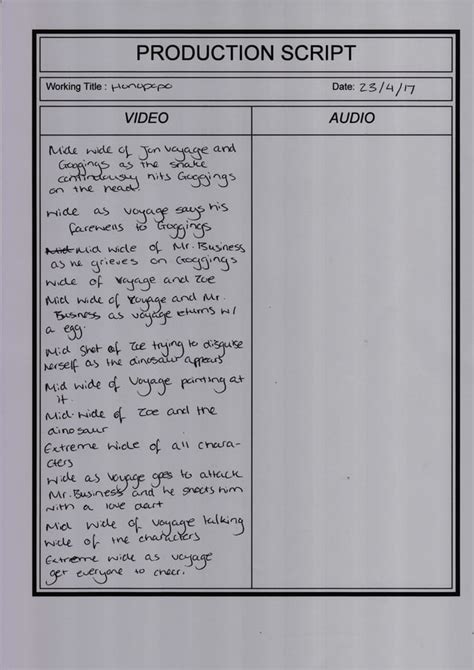 PRODUCTION SCRIPT
Working Title : Date: 23/4/17
VIDEO AUDIO
Mide wide of Jon Voyage and
Goggings as the snake
continuously hits Goggings
on the head
wide as voyage says his
farewells to Goggings
Mid Mid wide of Mr. Business
as he grieves on Goggings
wide of Voyage and Zoe
Mid wide of Voyage and Mr.
Business as voyage returns w/
a egg.
Mid Shot of Zoe trying to disguise
herself as the dinosaur appears
Mid wide of Voyage pointing at
it.
Mid-wide of Zoe and the
dinosaur
Extreme wide of all chara-
cters
wide as voyage goes to attack
Mr. Business and he shoots him
with a love dart
Mid wide of voyage talking
wide of the characters
Extreme wide as voyage
get everyone to cheer.